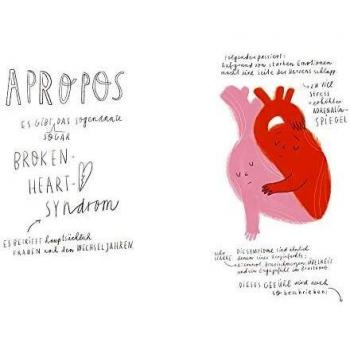 APROPOS
ES GIBT DAS sogenannte
SOGAR
BROKEN-
HEART-
Syndrom
ES BETRIFFT hauptsächlich
FRAUEN nach den WECHSELJAHREN.
Folgendes passiert:
Aufgrund von starken Emotionen
macht eine Seite des Herzens schlapp.
→ zu viel
STRESS
+ erhöhter
ADRENALIN-
SPIEGEL
DIE SYMPTOME sind ähnlich
denen eines Herzinfarkts:
ÜBELKEIT
und ein Engegefühl im Brustkorb.
DIESES GEFÜHL wird auch
so beschrieben: